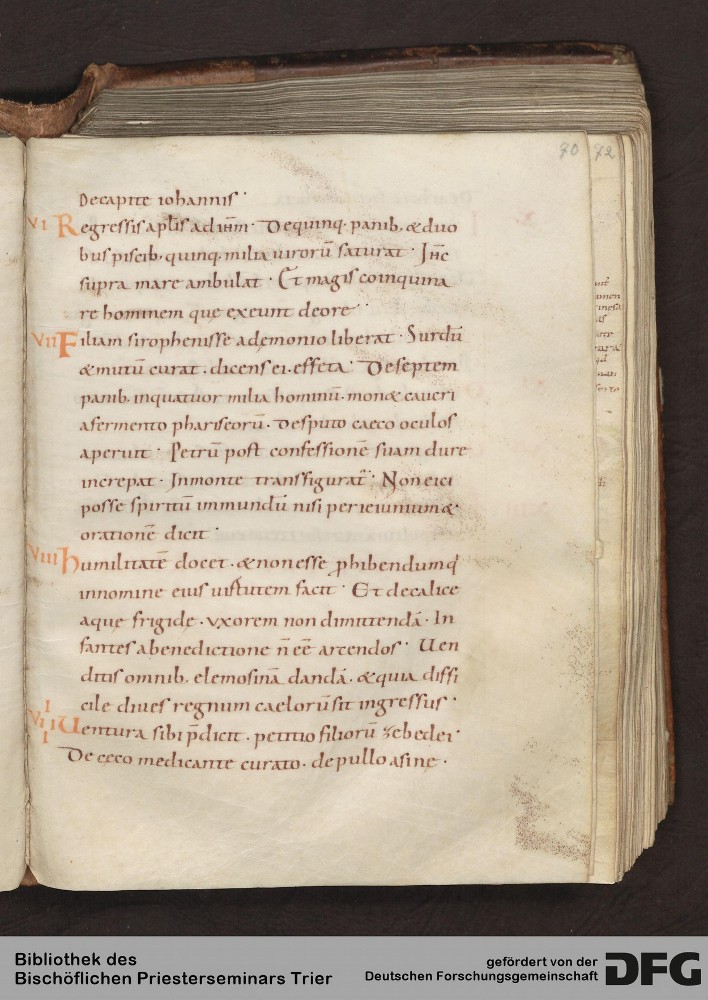 90 92
Decapite iohannis·
VI Regressis aplīs ad ihm̄· De quinq· panib· & duo
bus piscib· quinq· milia uirorū saturat· Ihc̄
supra mare ambulat· Et magis coinquina
re hominem que exeunt de ore·
VII Filiam sirophenisse a demonio liberat· Surdū
& mutū curat· dicens ei· effeta· De septem
panib· in quatuor milia hominū· mon& caueri
a fermento phariseorū· De sputo caeco oculos
aperuit· Petrū post confessionē suam dure
increpat· In monte transfigurat̄· Non eici
posse spiritū immundū nisi per ieiunium &
orationē dicit·
VIII humilitatē docet· & non esse ꝓhibendum q'
in nomine eius uirtutem facit· Et de calice
aque frigide· uxorem non dimittendā· In
fantes a benedictione n̄ eē arcendos· Uen
ditis omnib· elemosinā dandā· & quia diffi
cile diues regnum caelorū sit ingressus·
VIIII Uentura sibi p̄dicit· petitio filiorū zebedei·
De ceco medicante curato· de pullo asine·
Bibliothek des
Bischöflichen Priesterseminars Trier
gefördert von der
Deutschen Forschungsgemeinschaft
DFG